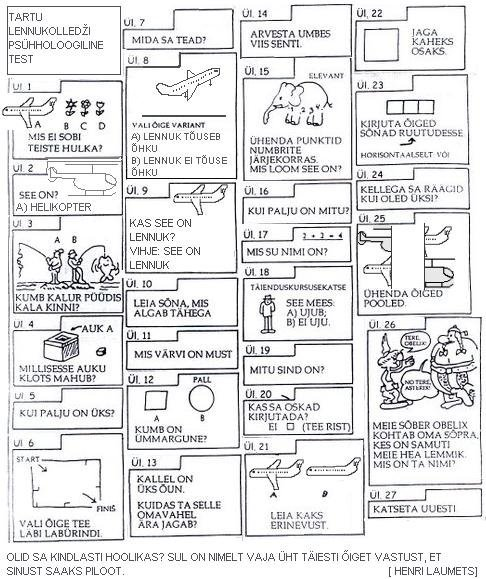 TARTU
LENNUKOLLEDŽI
PSÜHHOLOOGILINE
TEST
ÜL. 1
A B C D
MIS EI SOBI
TEISTE HULKA?
ÜL. 2
SEE ON?
A) HELIKOPTER
ÜL. 3
A B
KUMB KALUR PÜÜDIS
KALA KINNI?
ÜL. 4
AUK A
MILLISESSE AUKU
KLOTS MAHUB?
ÜL. 5
KUI PALJU ON ÜKS?
ÜL. 6
START
FINIŠ
VALI ÕIGE TEE
LÄBI LABÜRINDI.
ÜL. 7
MIDA SA TEAD?
ÜL. 8
VALI ÕIGE VARIANT
A) LENNUK TÕUSEB
ÕHKU
B) LENNUK EI TÕUSE
ÕHKU
ÜL. 9
KAS SEE ON
LENNUK?
VIHJE: SEE ON
LENNUK
ÜL. 10
LEIA SÕNA, MIS
ALGAB TÄHEGA
ÜL. 11
MIS VÄRVI ON MUST
ÜL. 12
PALL
A B
KUMB ON
ÜMMARGUNE?
ÜL. 13
KALLEL ON
ÜKS ÕUN.
KUIDAS TA SELLE
OMAVAHEL
ÄRA JAGAB?
ÜL. 14
ARVESTA UMBES
VIIS SENTI.
ÜL. 15
ELEVANT
ÜHENDA PUNKTID
NUMBRITE
JÄRJEKORRAS.
MIS LOOM SEE ON?
ÜL. 16
KUI PALJU ON MITU?
ÜL. 17
2 + 2 = 4
MIS SU NIMI ON?
ÜL. 18
TÄIENDUSKURSUSEKATSE
SEE MEES:
A) UJUB;
B) EI UJU.
ÜL. 19
MITU SIND ON?
ÜL. 20
KAS SA OSKAD
KIRJUTADA?
EI (TEE RIST)
ÜL. 21
A B
LEIA KAKS
ERINEVUST.
ÜL. 22
JAGA
KAHEKS
OSAKS.
ÜL. 23
KIRJUTA ÕIGED
SÕNAD RUUTUDESSE
HORISONTAALSELT VÕI
ÜL. 24
KELLEGA SA RÄÄGID
KUI OLED ÜKSI?
ÜL. 25
ÜHENDA ÕIGED
POOLED.
ÜL. 26
TERE,
OBELIX!
NO TERE,
ASTERIX!
MEIE SÕBER OBELIX
KOHTAB OMA SÕPRA,
KES ON SAMUTI
MEIE HEA LEMMIK.
MIS ON TA NIMI?
ÜL. 27
KATSETA UUESTI.
OLID SA KINDLASTI HOOLIKAS? SUL ON NIMELT VAJA ÜHT TÄIESTI ÕIGET VASTUST, ET
SINUST SAAKS PILOOT. [ HENRI LAUMETS]